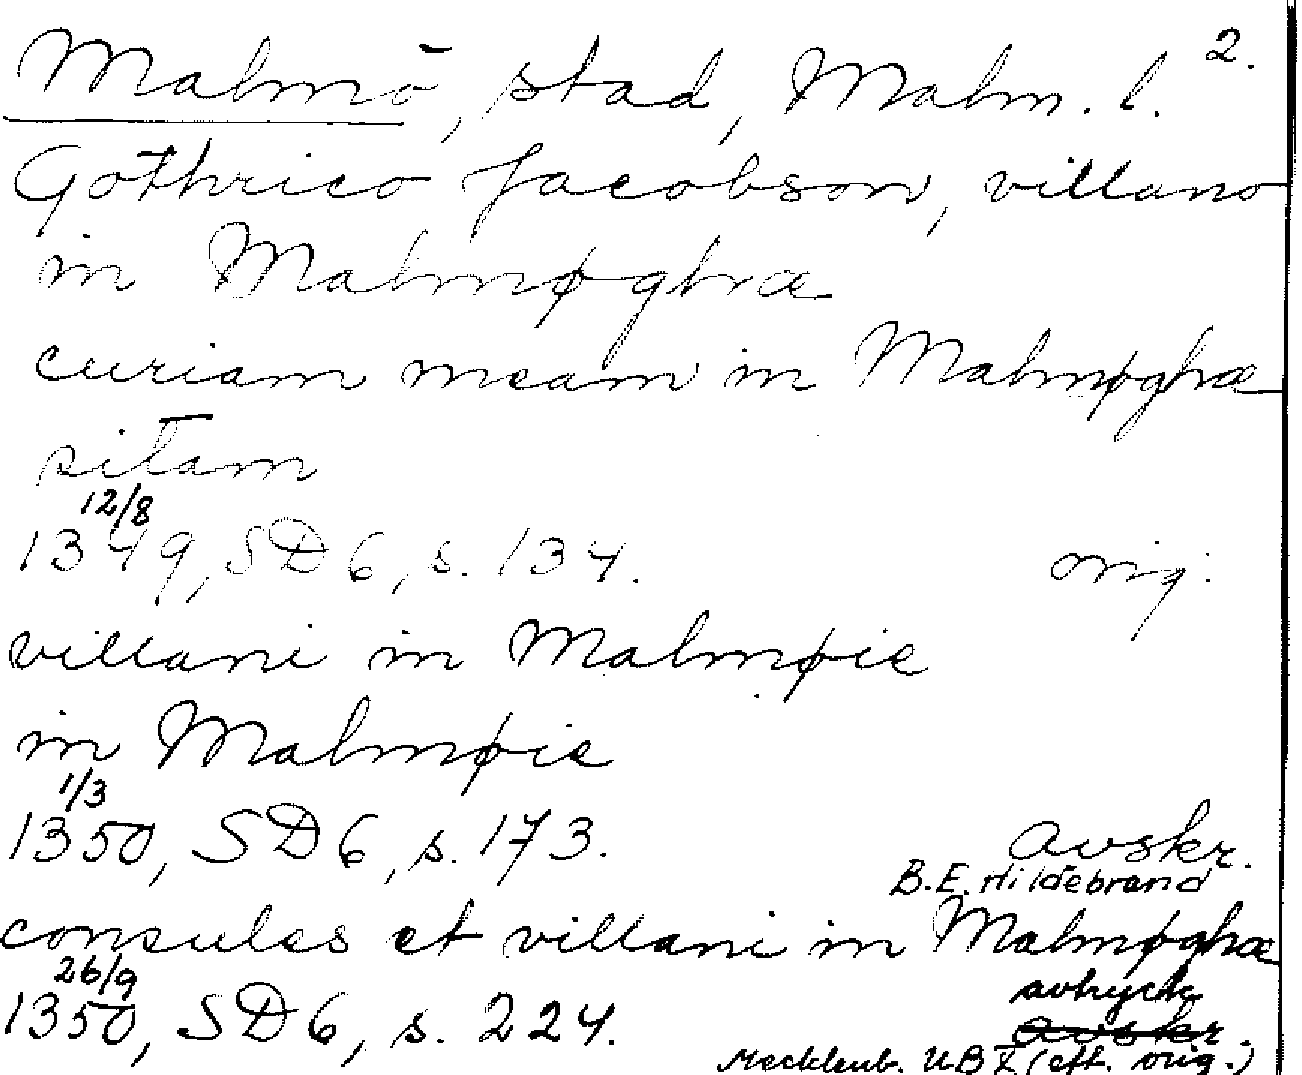 2.
Malmö, stad, Malm. l.
Gothrico Jacobson, villano
in Malmøghæ
curiam meam in Malmøghæ
sitam
12/8
1349, SD 6, s. 134. orig.
villani in Malmøie
in Malmøie
1/3
1350, SD 6, s. 173. avskr.
B.E. Hildebrand
consules et villani in Malmøghæ
26/9 avtryck
1350, SD 6, s. 224. avskr.
Mecklenb. UB X (eft. orig.)